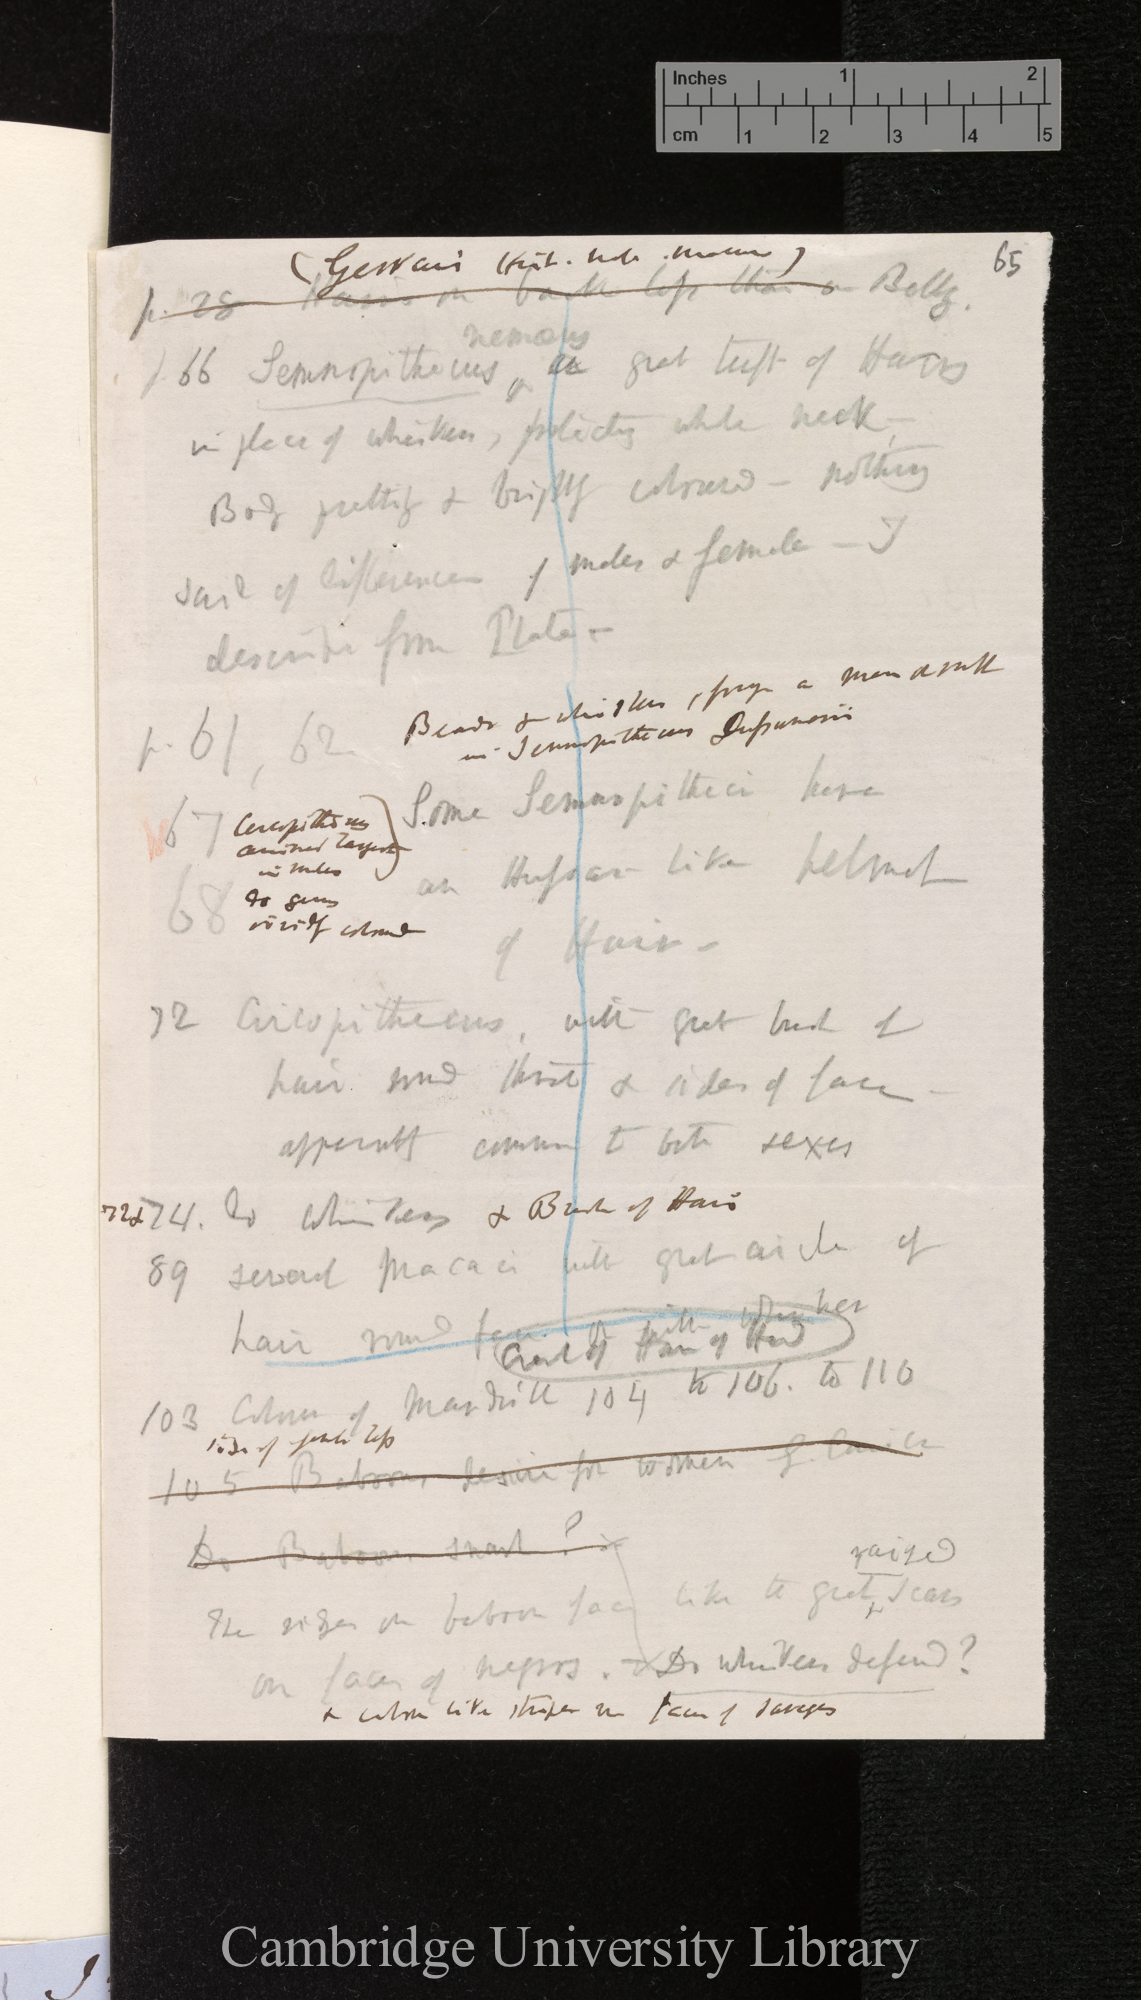 Inches 1 2
cm 1 2 3 4 5
65
(Gervais Hist. nat. mamm)
p. 28 Hairs on back less than on Belly.
nemæus
p 66 Semnopithecus, great tuft of Hairs
in place of whiskers, white neck —
Body prettily & brightly coloured — nothing
said of differences of males & female — I
describe from Plate —
p. 61, 62
Beard & whiskers, fringe a
in Semnopithecus Dussumerii
67 Cercopithecus
canines larger
in males
68 do genus
vividly coloured
Some Semnopitheci have
an Hussar like helmet
of Hair —
72 Cercopithecus, with great bush of
hair round throat & sides of face —
apparently common to both sexes
72 & 74. do whiskers & Brush of Hair
89 several Macaci with great circle of
hair round face. with whisker
Crest of Hair of Head
103 Colour of Mandrill 104 to 106. to 110
105 Baboons desire for women
Do Baboons ?
The ridges on baboon face like the great scars
raised
on faces of negros. — Do whiskers defend?
& colour like stripes on faces of savages
Cambridge University Library